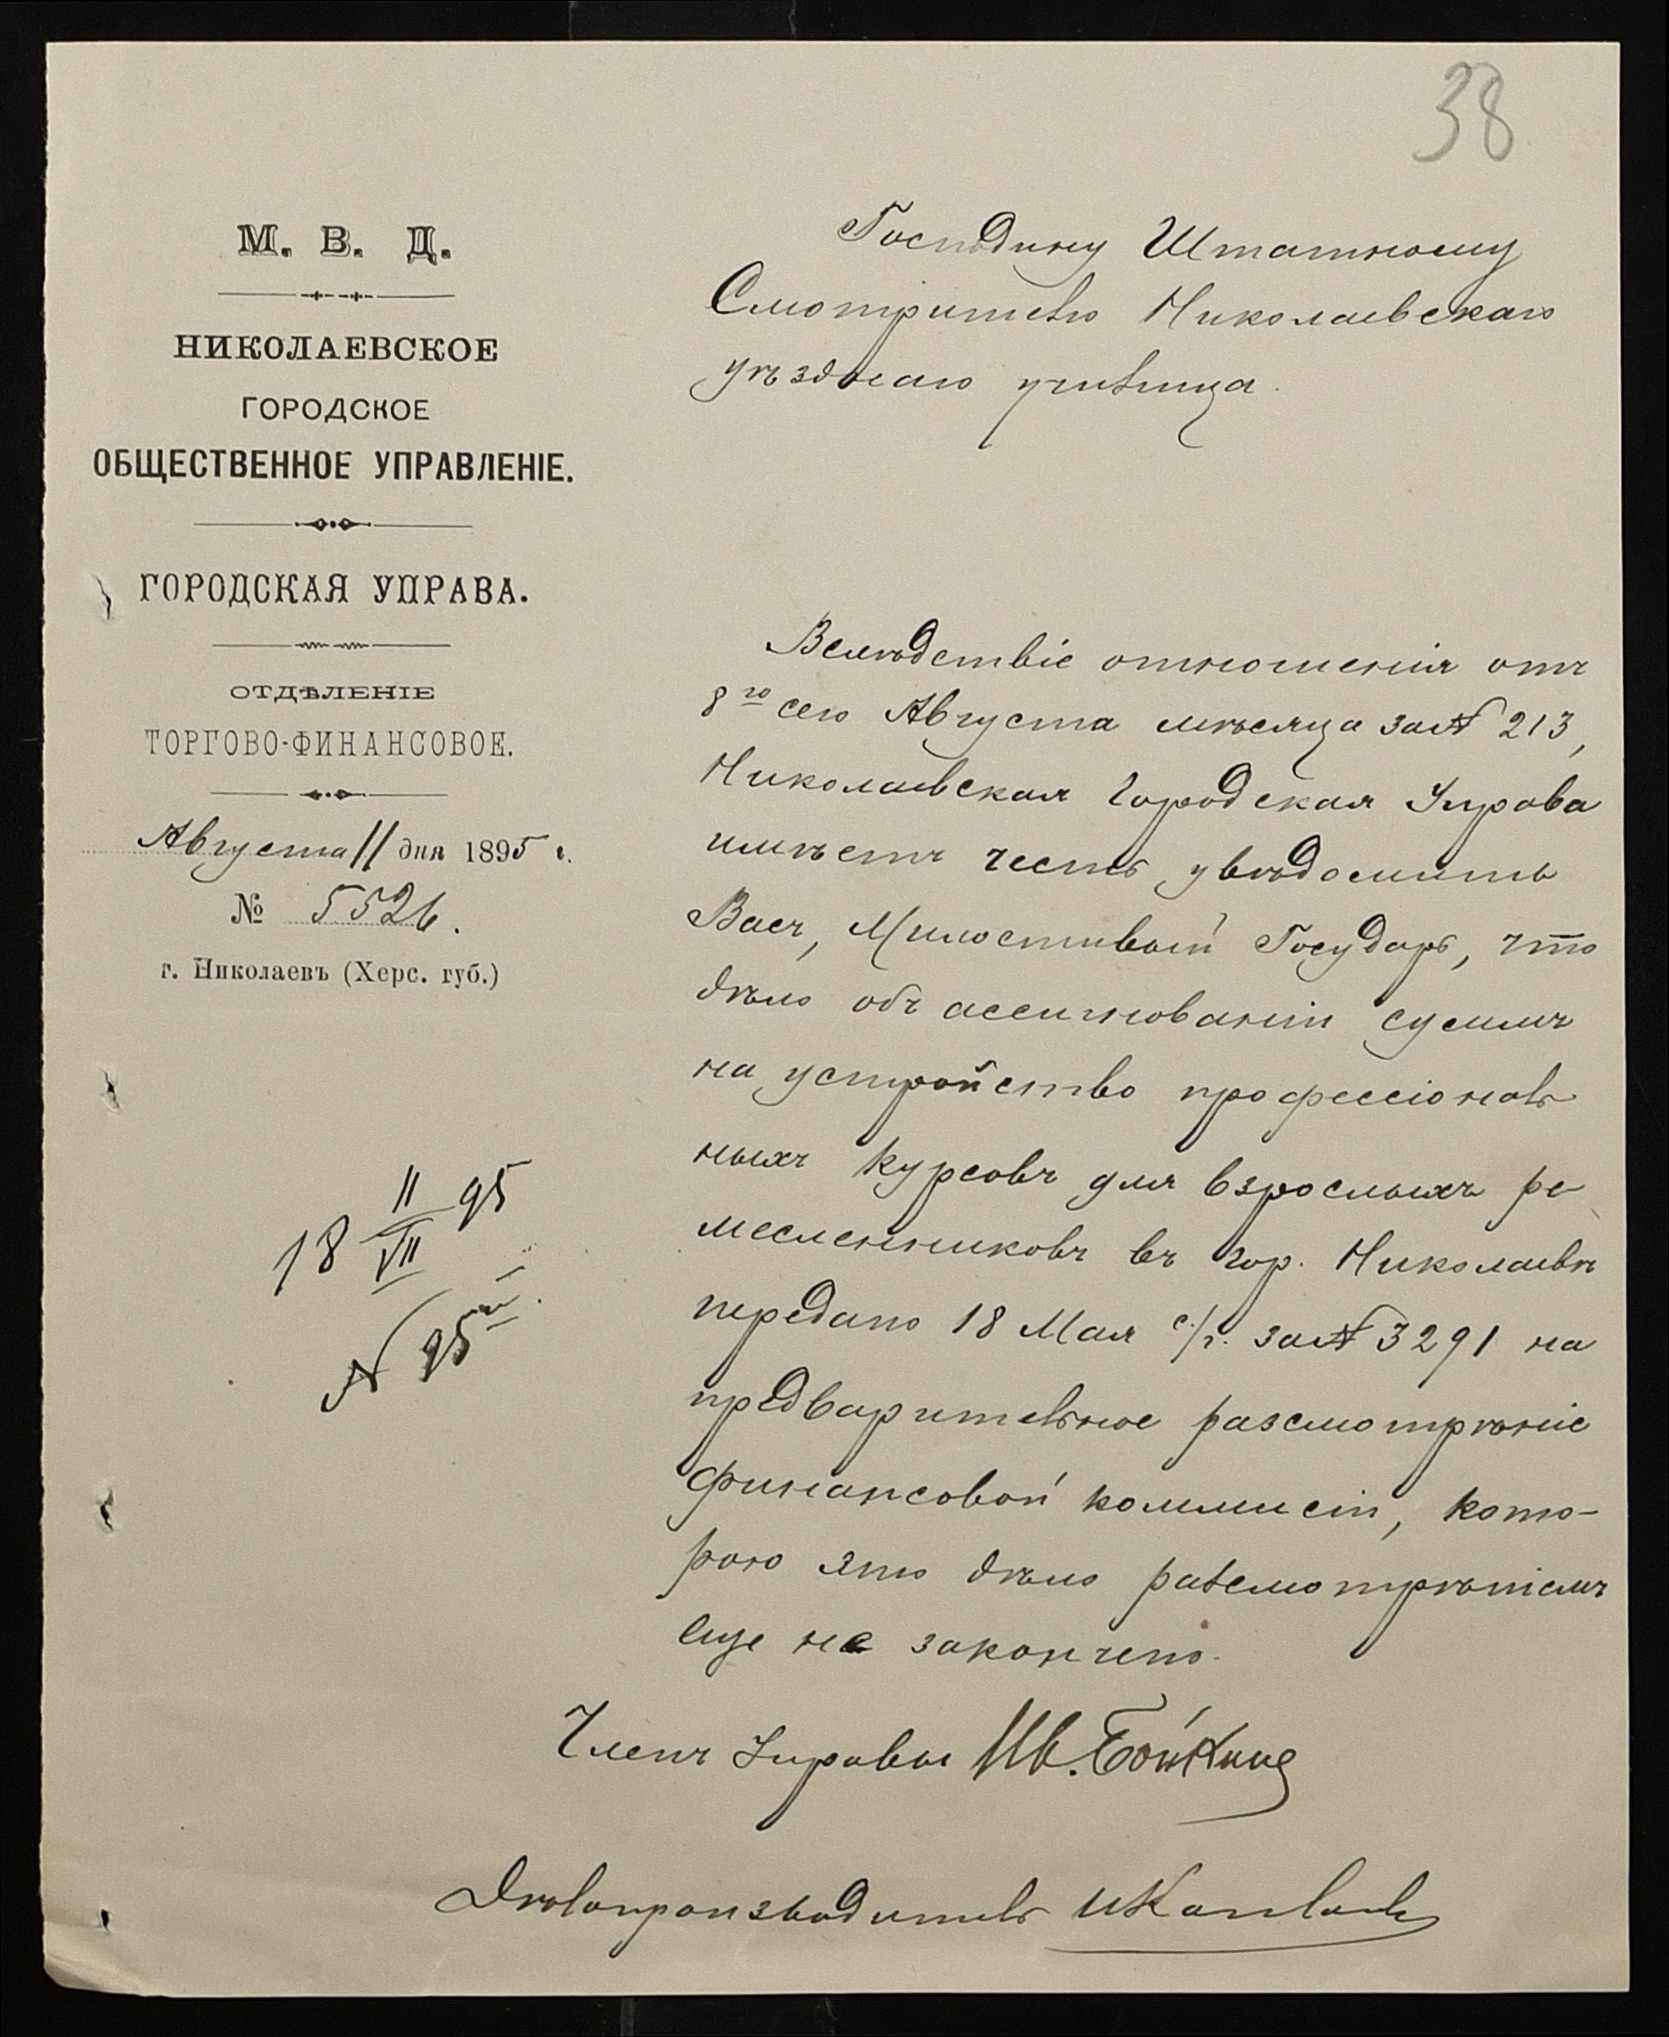 38
М. В. Д.
НИКОЛАЕВСКОЕ
ГОРОДСКОЕ
ОБЩЕСТВЕННОЕ УПРАВЛЕНІЕ.
ГОРОДСКАЯ УПРАВА.
ОТДѢЛЕНІЕ
ТОРГОВО-ФИНАНСОВОЕ.
Августа 11 дня 1895 г.
№ 5526.
г. Николаевъ (Херс. губ.)
18 11/VII 95
№ 95
Господину Штатному
Смотрителю Николаевскаго
уѣзднаго училища.
Вслѣдствіе отношенія отъ
8го сего Августа мѣсяца за № 213,
Николаевская Городская Управа
имѣетъ честь увѣдомить
Васъ, Милостивый Государь, что
дѣло объ ассигнованіи суммъ
на устройство профессіональ
ныхъ курсовъ для взрослыхъ ре
месленниковъ въ гор. Николаевѣ
передано 18 Мая с./г. за № 3291 на
предварительное разсмотрѣніе
финансовой коммисіи, кото-
рою это дѣло разсмотрѣніемъ
еще не закончено.
Членъ Управы Ив. Бойкина
Дѣлопроизводитель